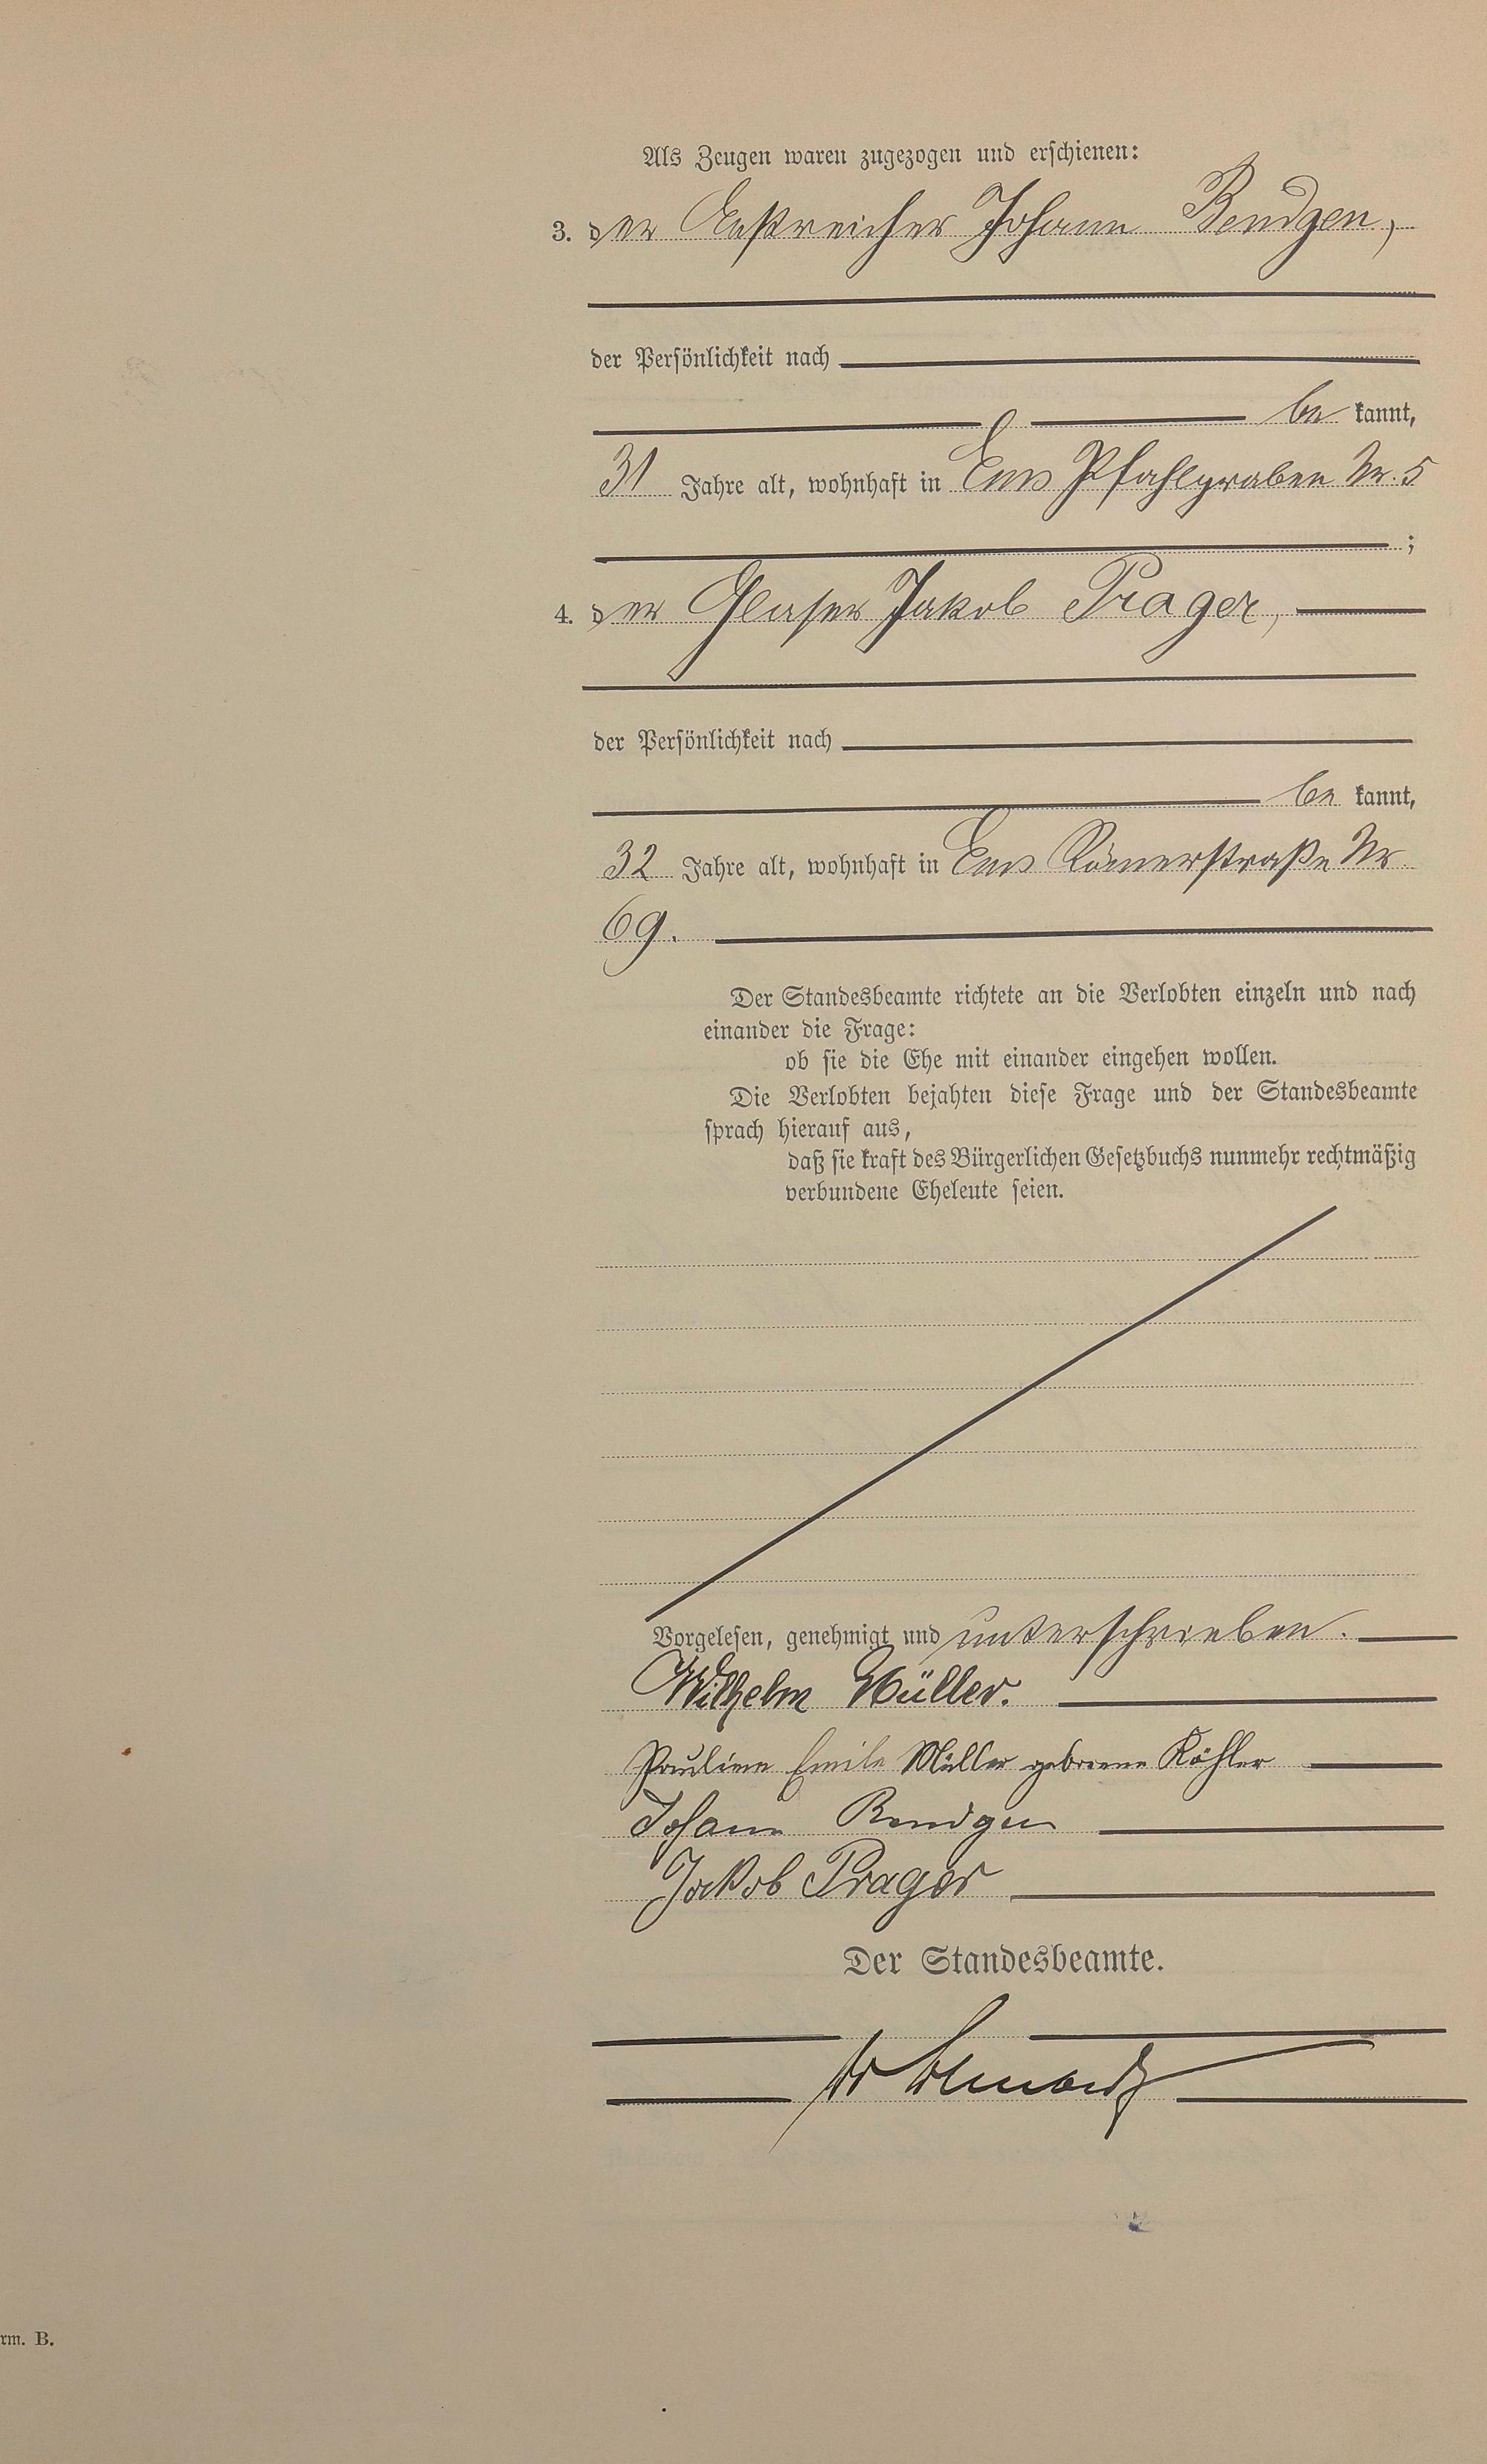 Als Zeugen waren zugezogen und erschienen:
3. der Anstreicher Johann Bendgen,
der Persönlichkeit nach
be kannt,
31 Jahre alt, wohnhaft in Ems Pfahlgraben Nr. 5
;
4. der Glaser Jakob Prager,
der Persönlichkeit nach
be kannt,
32 Jahre alt, wohnhaft in Ems Römerstraße Nr
69.
Der Standesbeamte richtete an die Verlobten einzeln und nach
einander die Frage:
ob sie die Ehe mit einander eingehen wollen.
Die Verlobten bejahten diese Frage und der Standesbeamte
sprach hierauf aus,
daß sie kraft des Bürgerlichen Gesetzbuchs nunmehr rechtmäßig
verbundene Eheleute seien.
Vorgelesen, genehmigt und unterschrieben.
Wilhelm Müller.
Pauline Emile Müller geborene Köhler
Johann Bendgen
Jakob Prager
Der Standesbeamte.
rm. B.